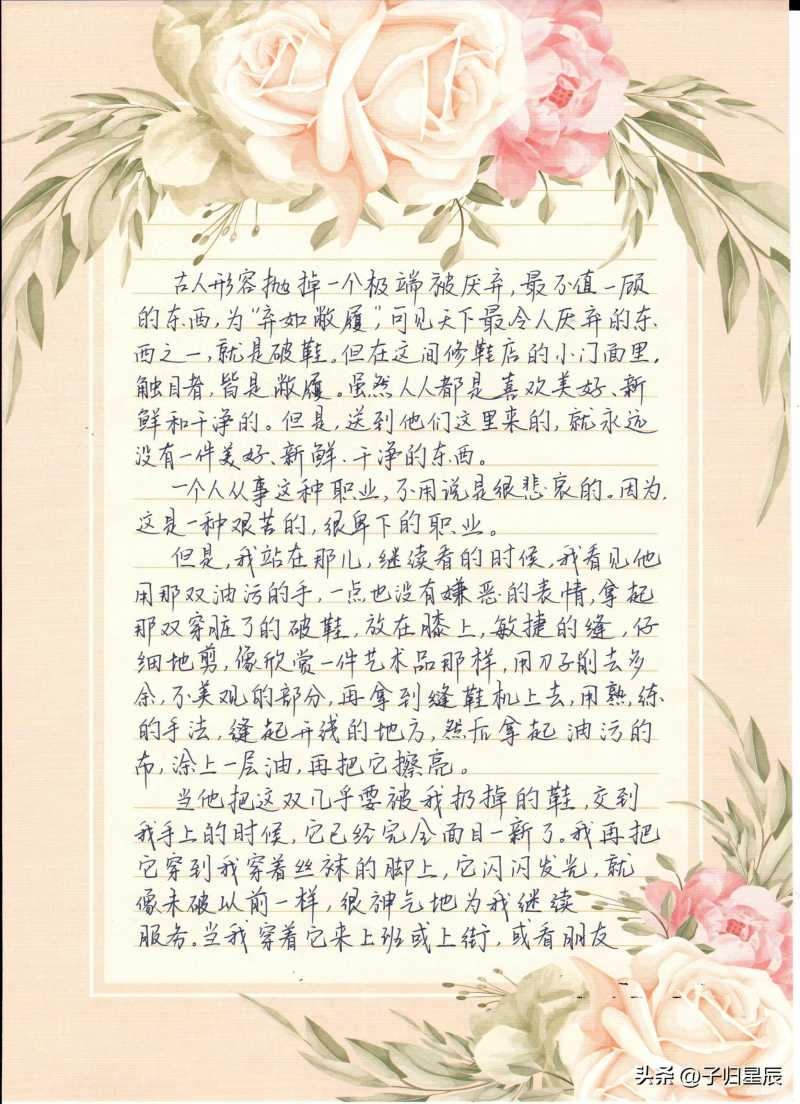 古人形容抛掉一个极端被厌弃,最不值一顾
的东西,为“弃如敝履”,可见天下最令人厌弃的东
西之一,就是破鞋。但在这间修鞋店的小门面里,
触目者,皆是敝履。虽然人人都是喜欢美好、新
鲜和干净的。但是,送到他们这里来的,就永远
没有一件美好、新鲜、干净的东西。
一个人从事这种职业,不用说是很悲哀的。因为,
这是一种艰苦的,很卑下的职业。
但是,我站在那儿,继续看的时候,我看见他
用那双油污的手,一点也没有嫌恶的表情,拿起
那双穿脏了的破鞋,放在膝上,敏捷的缝,仔
细地剪,像欣赏一件艺术品那样,用刀子削去多
余,不美观的部分,再拿到缝鞋机上去,用熟练
的手法,缝起开线的地方,然后拿起油污的
布,涂上一层油,再把它擦亮。
当他把这双几乎要被我扔掉的鞋,交到
我手上的时候,它已经完全面目一新了。我再把
它穿到我穿着丝袜的脚上,它闪闪发光,就
像未破以前一样,很神气地为我继续
服务。当我穿着它来上班或上街,或看朋友
头条 @子归星辰